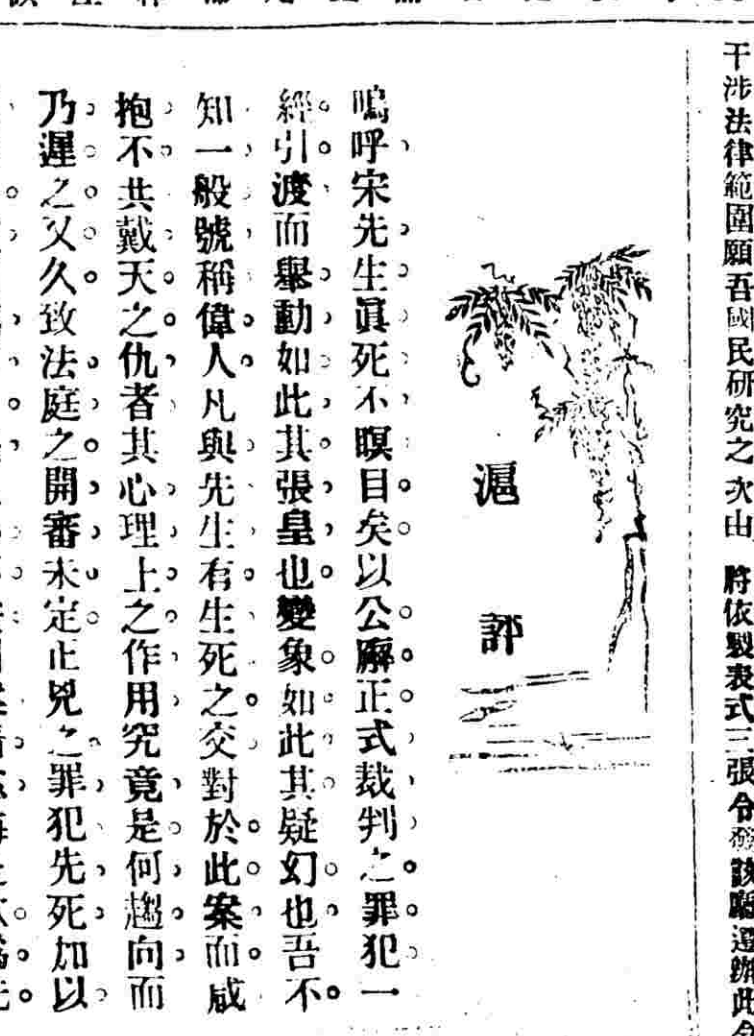 干涉法律範圍願吾國民研究之 次山 將依製表式三張令發該
滬評
嗚呼宋先生眞死不瞑目矣以公廨正式裁判之罪犯一
經引渡而舉動如此其張皇也變象如此其疑幻也吾不
知一般號稱偉人凡與先生有生死之交對於此案而咸
抱不共戴天之仇者其心理上之作用究竟是何趨向而
乃遲之又久致法庭之開審未定正兇之罪犯先死加以